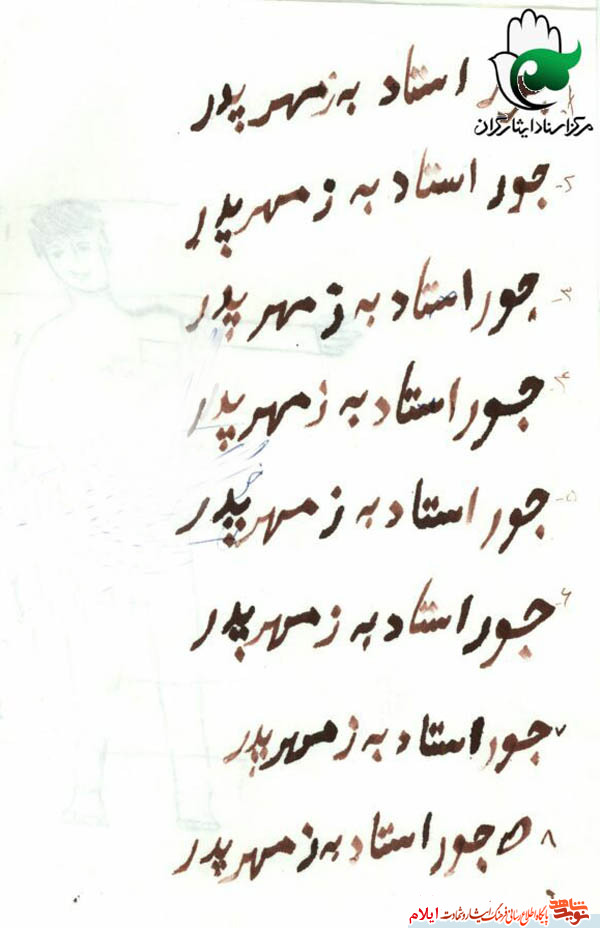 ۱- جور استاد به ز مهر پدر
مرکز اسناد ایثارگران
۲- جور استاد به ز مهر پدر
۳- جور استاد به ز مهر پدر
۴- جور استاد به ز مهر پدر
۵- جور استاد به ز مهر پدر
۶- جور استاد به ز مهر پدر
۷ جور استاد به ز مهر پدر
۸ جور استاد به ز مهر پدر
نوید شاهد
پایگاه اطلاع رسانی فرهنگ ایثار و شهادت ایلام